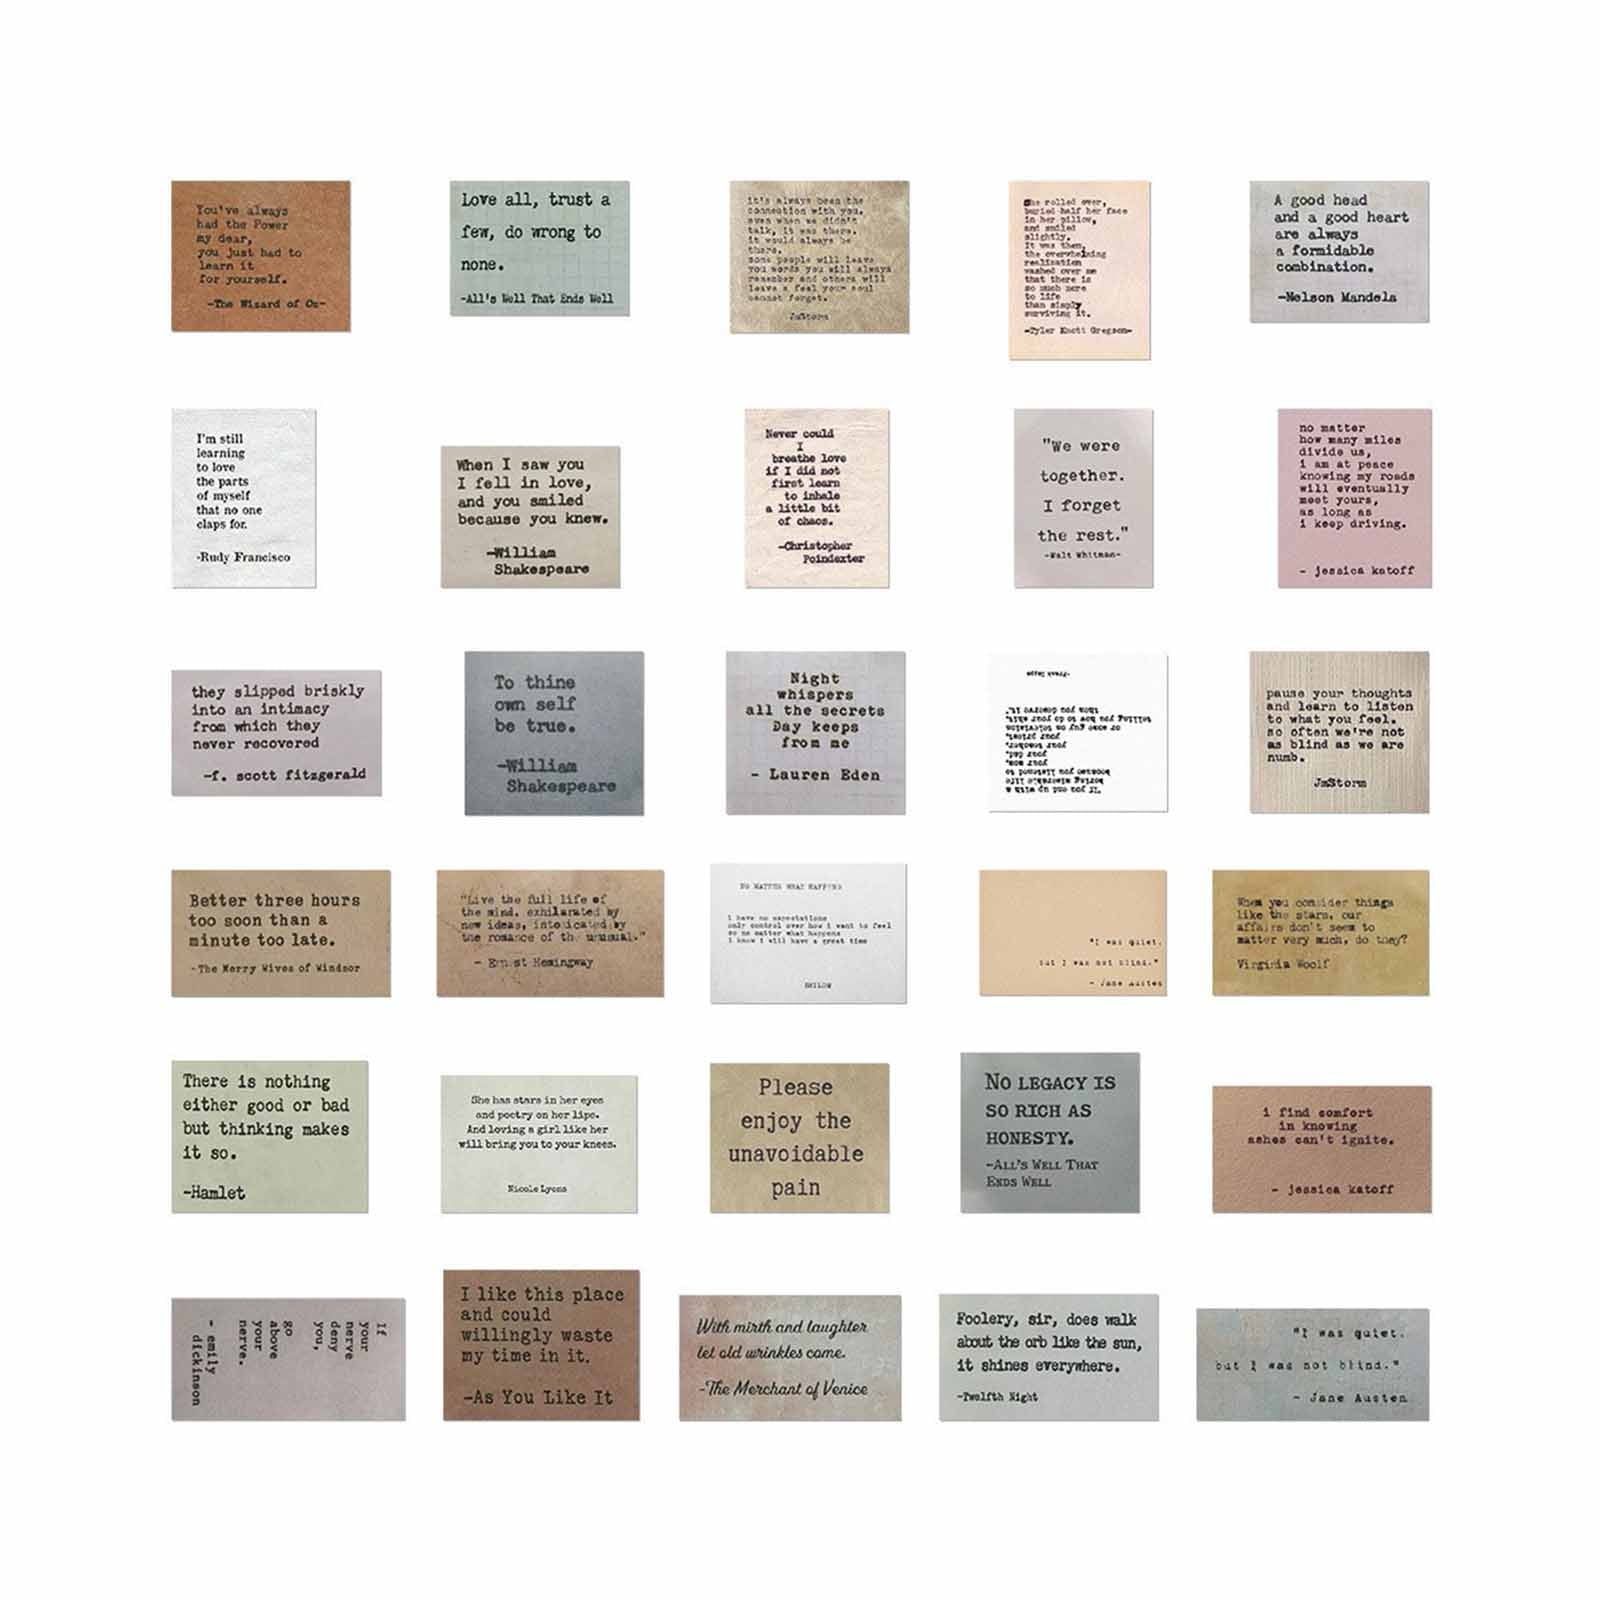 You've always
had the Power
my dear,
you just had to
learn it
for yourself.
-The Wizard of Oz-
Love all, trust a
few, do wrong to
none.
-All's Well That Ends Well
it's always been the
connection with you.
even when we didn't
talk, it was there.
it would always be
there.
some people will leave
you words you will always
remember and others will
leave a feel your soul
cannot forget.
JmStorm
She rolled over,
buried half her face
in her pillow,
and smiled
slightly.
It was then,
the overwhelming
realization
washed over me
that there is
so much more
to life
than simply
surviving it.
-Tyler Knott Gregson-
A good head
and a good heart
are always
a formidable
combination.
-Nelson Mandela
I'm still
learning
to love
the parts
of myself
that no one
claps for.
-Rudy Francisco
When I saw you
I fell in love,
and you smiled
because you knew.
-William
Shakespeare
Never could
I
breathe love
if I did not
first learn
to inhale
a little bit
of chaos.
-Christopher
Poindexter
"We were
together.
I forget
the rest."
-Walt Whitman-
no matter
how many miles
divide us,
i am at peace
knowing my roads
will eventually
meet yours,
as long as
i keep driving.
- jessica katoff
they slipped briskly
into an intimacy
from which they
never recovered
-f. scott fitzgerald
To thine
own self
be true.
-William
Shakespeare
Night
whispers
all the secrets
Day keeps
from me
- Lauren Eden
"If you end up with a
boring miserable life
because you listened to
your mom,
your dad,
your teacher,
your priest,
or some guy on television
telling you how to do your shit,
then you deserve it".
-Frank Zappa
pause your thoughts
and learn to listen
to what you feel.
so often we're not
as blind as we are
numb.
JmStorm
Better three hours
too soon than a
minute too late.
-The Merry Wives of Windsor
"Live the full life of
the mind, exhilarated by
new ideas, intoxicated by
the romance of the unusual."
- Ernest Hemingway
NO MATTER WHAT HAPPENS
i have no expectations
only control over how i want to feel
so no matter what happens
i know i will have a great time
"I was quiet,
but I was not blind."
- Jane Austen
When you consider things
like the stars, our
affairs don't seem to
matter very much, do they?
Virginia Woolf
There is nothing
either good or bad
but thinking makes
it so.
-Hamlet
She has stars in her eyes
and poetry on her lips.
And loving a girl like her
will bring you to your knees.
Nicole Lyons
Please
enjoy the
unavoidable
pain
NO LEGACY IS
SO RICH AS
HONESTY.
-ALL'S WELL THAT
ENDS WELL
i find comfort
in knowing
ashes can't ignite.
- jessica katoff
If
your
nerve
deny
you,
go
above
your
nerve.
- emily
dickinson
I like this place
and could
willingly waste
my time in it.
-As You Like It
With mirth and laughter
let old wrinkles come.
-The Merchant of Venice
Foolery, sir, does walk
about the orb like the sun,
it shines everywhere.
-Twelfth Night
"I was quiet,
but I was not blind."
- Jane Austen